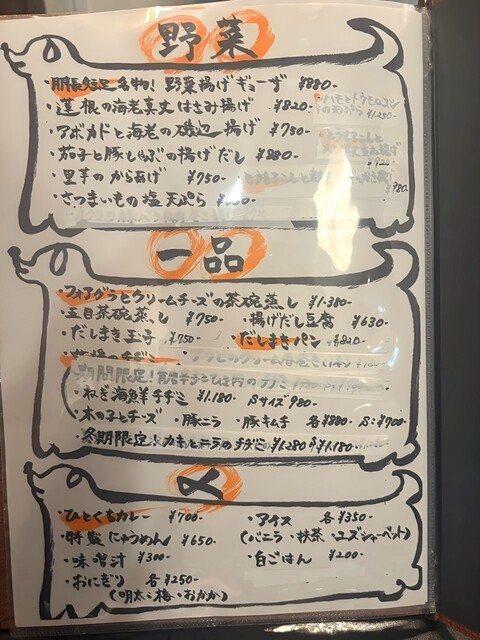 野菜
名物! 野菜揚げギョーザ ¥880-
・蓮根の海老真丈はさみ揚げ ¥820-
・アボカドと海老の磯辺揚げ ¥750-
・茄子と豚しゃぶの揚げだし ¥880-
・里芋のからあげ ¥750-
・さつまいもの塩天ぷら
¥1,250
¥920
980
一品
・フォアグラとクリームチーズの茶碗蒸し ¥1,380-
・五目茶碗蒸し ¥750- ・揚げだし豆腐 ¥630-
・だしまき玉子 ¥750- ・だしまきパン ¥820-
期間限定!
・ねぎ海鮮チヂミ ¥1,180- Sサイズ 980-
・木の子とチーズ ・豚ニラ ・豚キムチ 各¥880- S:¥700-
・冬期限定 カキとニラのチヂミ ¥1,280 S ¥1,180-
〆
・ひとくちカレー ¥700- ・アイス 各¥350-
・特製にゅうめん ¥650- (バニラ・抹茶・ユズシャーベット)
・味噌汁 ¥300- ・白ごはん ¥200-
・おにぎり 各¥250-
(明太・梅・おかか)